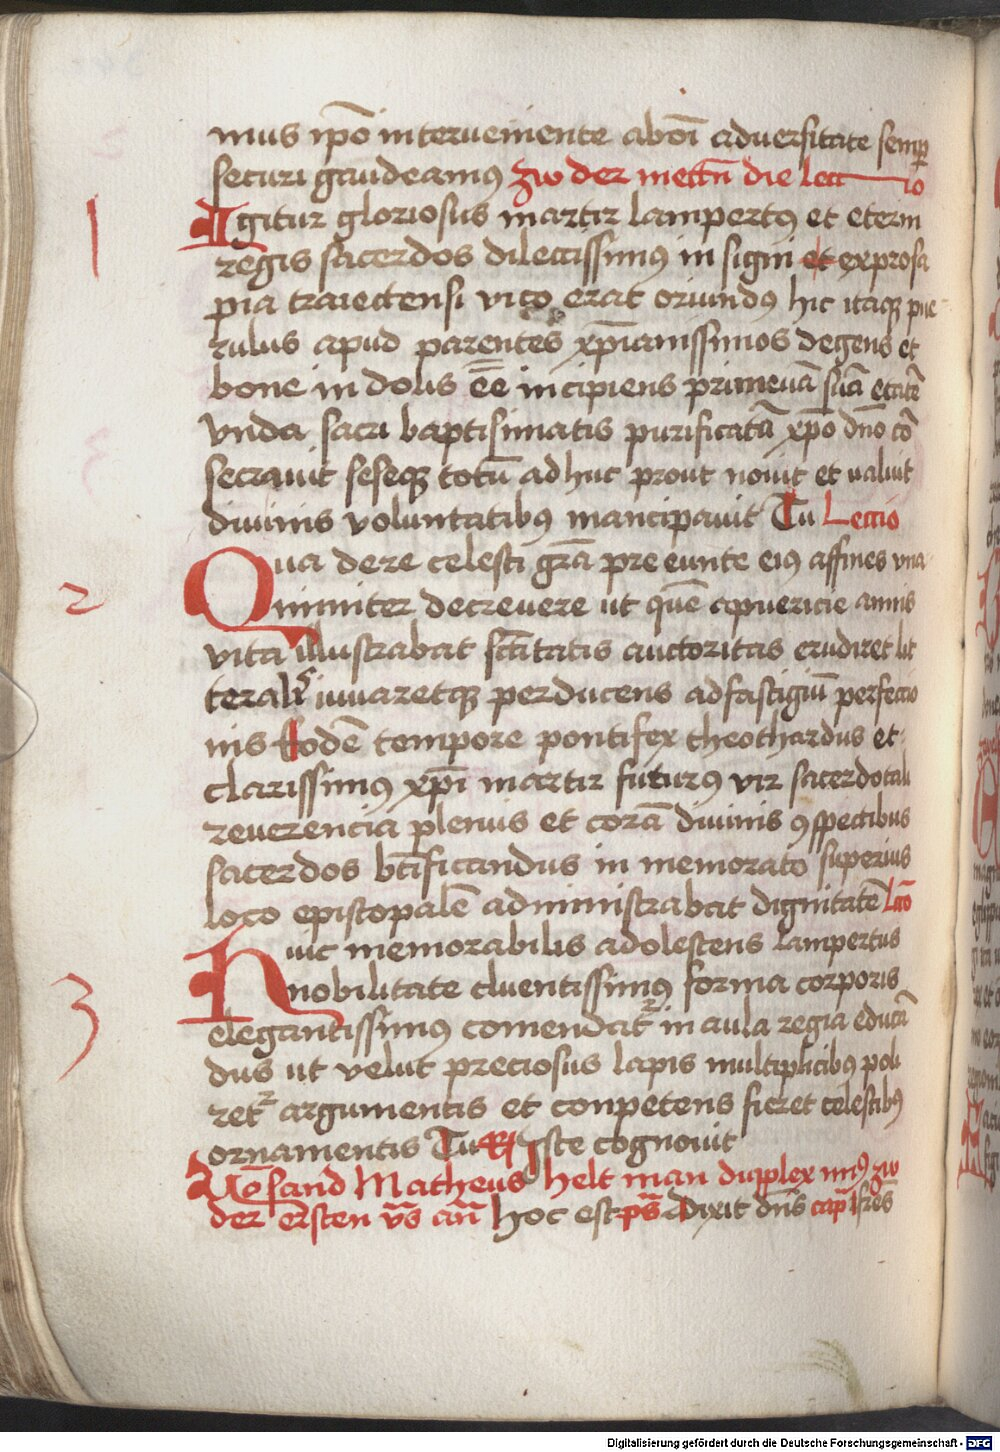 mus ip̄o interueniente ab oī aduersitate semꝑ
securi gaudeamus zw der mettn̄ die lectio
1 Igitur gloriosus martir lampertꝰ et eterni
regis sacerdos dilectissimꝰ in signi et ex prosa
pia traiectensi vico erat oriundꝰ hic itaqꝫ pue
rulus apud parentes xp̄ianissimos degens et
bone in dolis ēē incipiens primeuā suā etatē
vnda sacri baptisimatis purificatā xp̄o dn̄o cō
secrauit seseqꝫ totū ad huc prout nouit et ualuit
diuinis voluntatibꝰ mancipauit Tu Leccio
2 Qua de re celesti gr̄a pre eunte eiꝰ affines vna
nimiter decreuere ut quē a puericie annis
vita illustrabat sc̄titatis auctoritas erudiret lit
teralr̄ iuuaretqꝫ perducens ad fastigiū perfectio
nis Eodē tempore pontifex theothardus et
clarissimꝰ xp̄i martir futurꝰ vir sacerdotali
reuerencia plenus et corā diuinis ꝯspectibus
sacerdos btīficandus in memorato superius
loco episcopalē administrabat dignitatē Lc̄o
3 Huic memorabilis adolescens lampertus
nobilitate cluentissimꝰ forma corporis
elegantissimꝰ comendatr̄ in aula regia educā
dus ut velut preciosus lapis multiplicibꝰ poli
retr̄ argumentis et conpetens fieret celestibꝰ
ornamentis Tu R Iste cognouit
Uō sand Matheus helt man dupplex minꝰ zw
der ersten v̄s an̄ hoc est ps̄ Dixit dn̄s cap̄l fr̄es
Digitalisierung gefördert durch die Deutsche Forschungsgemeinschaft - DFG